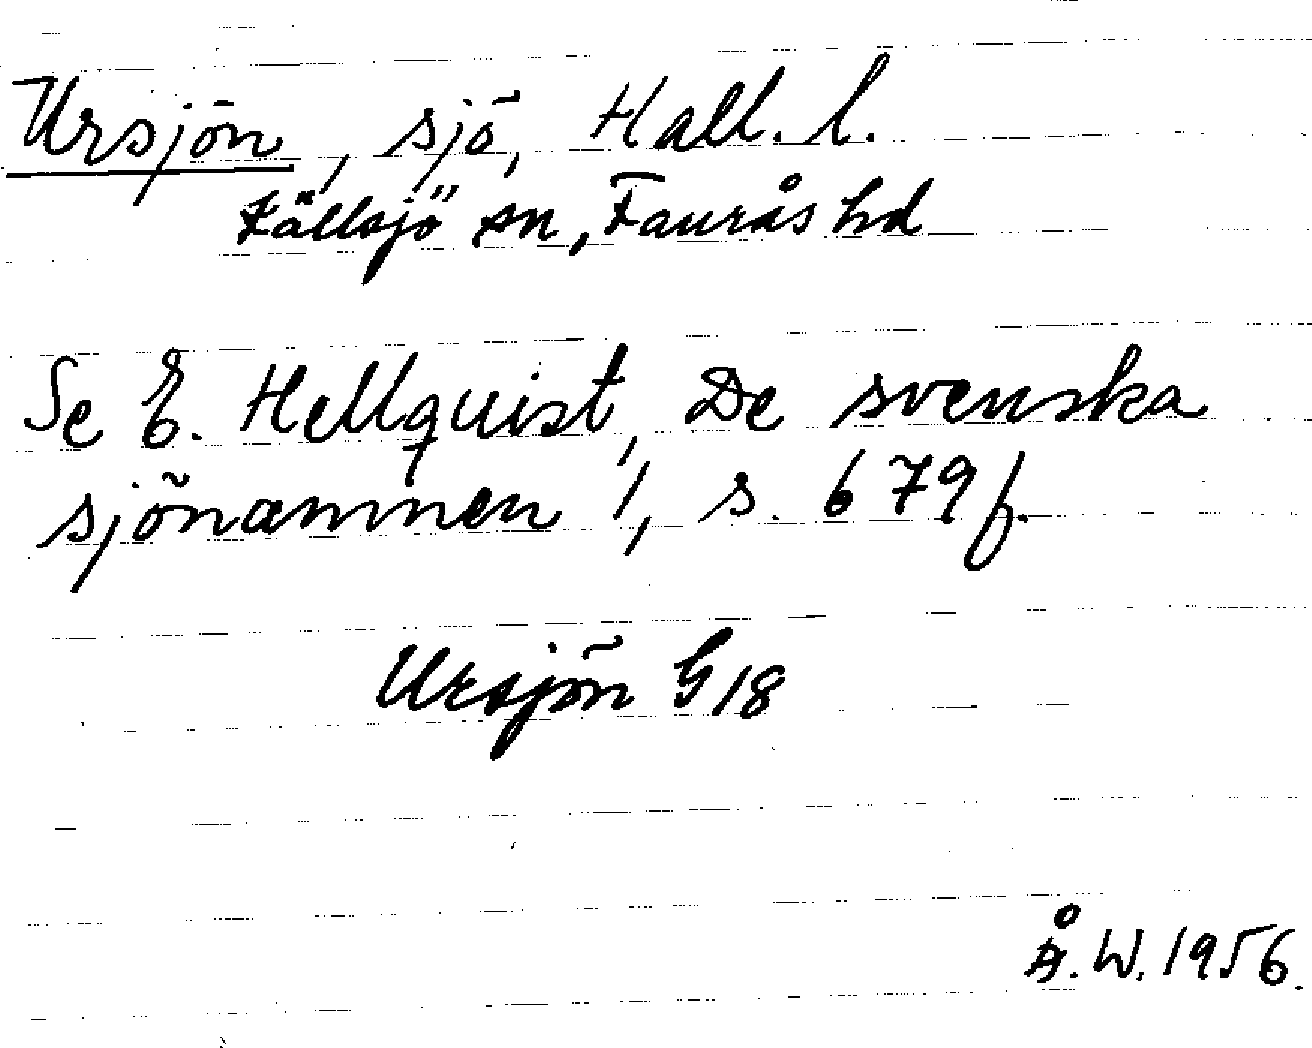 Ursjön, sjö, Hall. l.
Källsjö sn, Faurås hd
Se E. Hellquist, De svenska
sjönamnen 1, s. 679f.
Ursjön G18
Å.W. 1956.